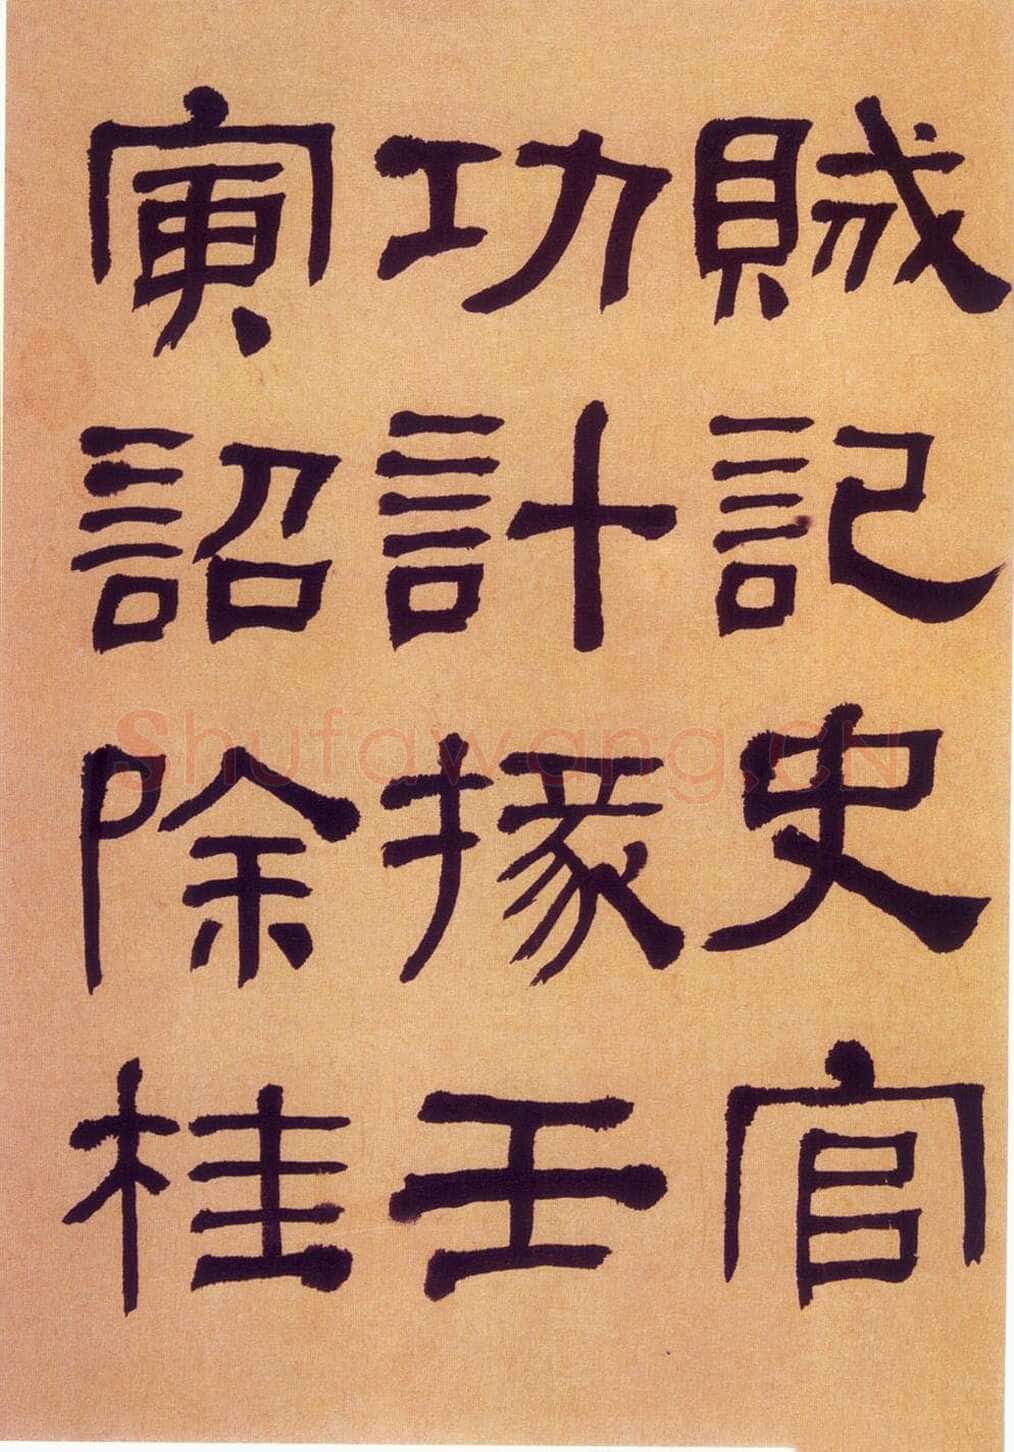 賊記史官
功計掾壬
寅詔除桂
Shufawang.CN